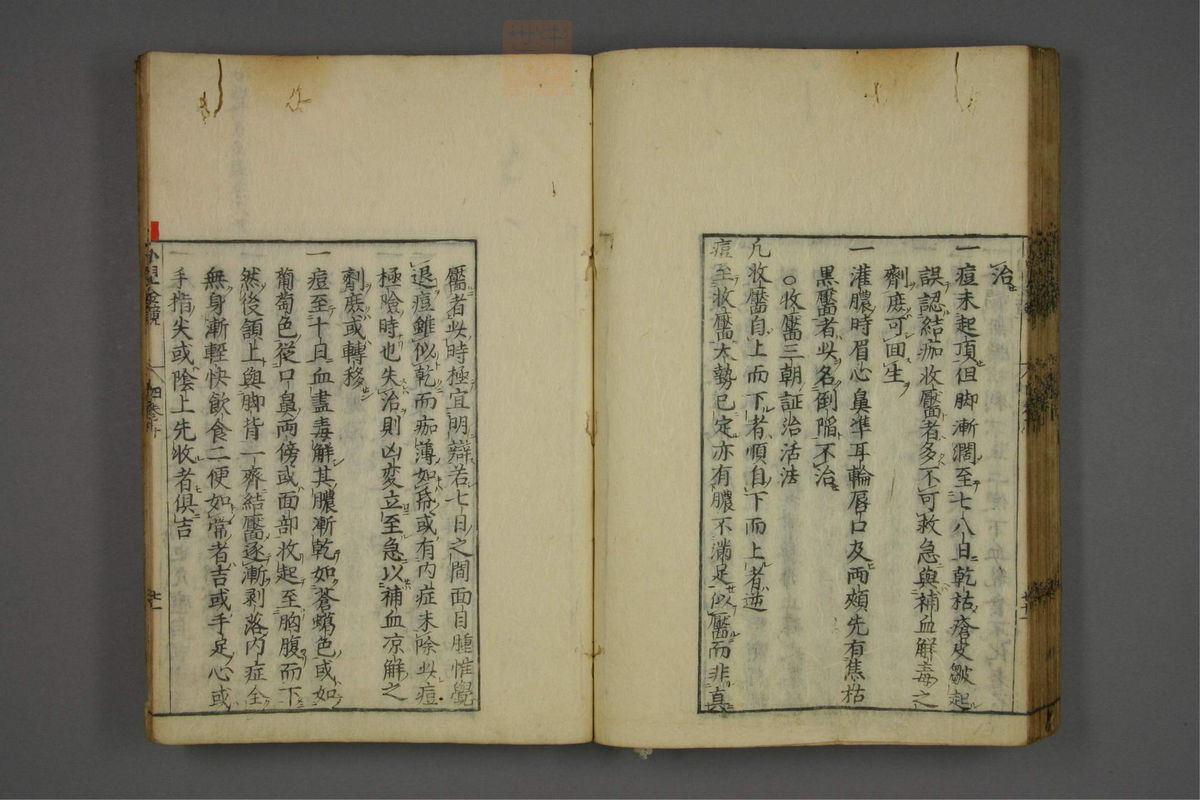 治
一痘未起頂但脚漸濶至七八日乾枯瘡皮皺起
誤認結痂收靨者多不可救急與補血觧毒之
劑庻可回生
一灌膿時眉心鼻準耳輪唇口及兩頰先有焦枯
黒靨者此名倒陷不治
○收靨三朝証治活法
凢收靨自上而下者順自下而上者逆
痘至收靨大勢已定亦有膿不滿足似靨而非真
靨者此時極宜明辯若七日之間面目腫惟覺
退痘雖似乾而痂薄如帋或有内症未除此痘
極險時也失治則凶変立至急以補血凉解之
劑庻或轉移
一痘至十日血盡毒解其膿漸乾如蒼蠟色或如
葡萄色從口鼻兩傍或面部收起至胸腹而下
然後額上與脚背一齊結靨逐漸剥落内症全
無身漸輕快飲食二便如常者吉或手足心或
手指尖或陰上先收者俱吉